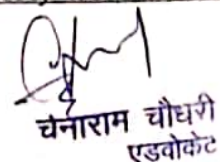 चेनाराम चौधरी
एडवोकेट